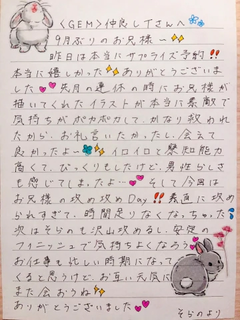 〈GEM〉仲良しTさんへ
9月ぶりのお兄様〜
昨日は本当にサプライズ予約!!
本当に嬉しかった ありがとうございま
した 先月の連休の時にお兄様が
描いてくれたイラストが本当に素敵で
気持ちがポカポカして、かなり救われ
たから、お礼言いたかったし、会えて
良かったよ〜 イロイロと察知能力
高くて、びっくりもしたけど、男性らしさ
も感じてしまったよ… そして今回は
お兄様の攻め攻めDay!! 素直に攻め
られすぎて、時間足りなくなっちゃった
次はそらのも沢山攻めるし、安定の
フィニッシュで気持ちよくなろう
お仕事も忙しい時期になって
くると思うけど、お互い元気に
また会おうね
ありがとうございました
そらのより